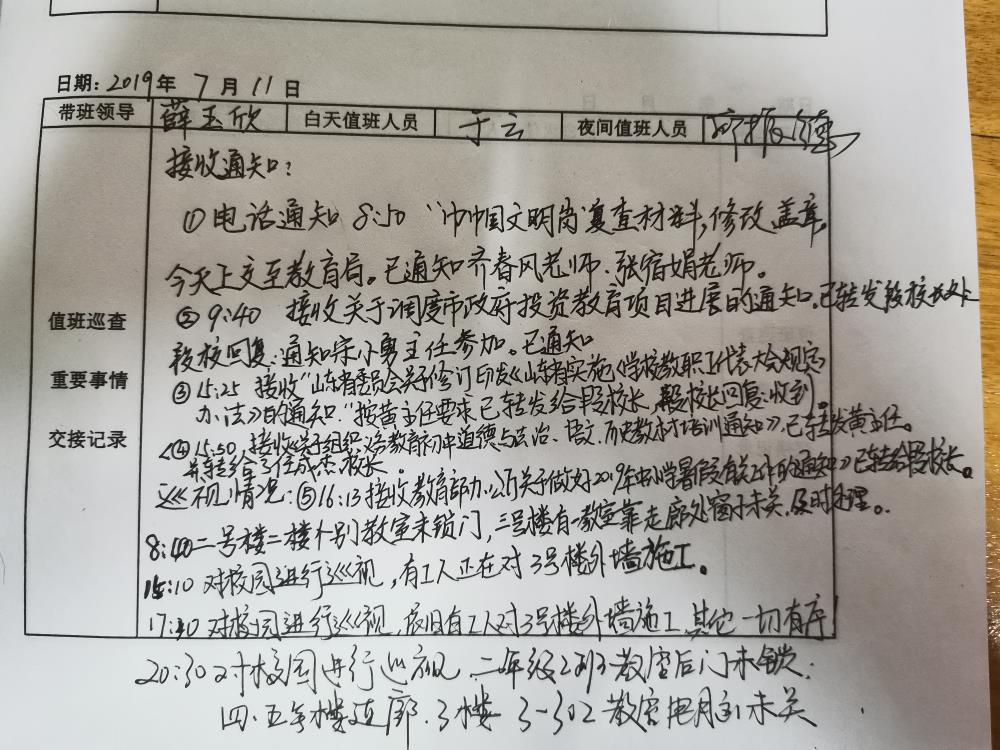 日期: 2019年 7 月 11 日
带班领导 薛玉欣 白天值班人员 于云 夜间值班人员
接收通知:
①电话通知 8:50 “巾帼文明岗”复查材料,修改盖章,
今天上交至教育局。已通知齐春风老师、张宿娟老师。
②9:40 接收关于调度市政府投资教育项目进展的通知。已转发段校长处
值班巡查
段校回复:通知宋小勇主任参加。已通知
重要事情
③15:25 接收“山东省委员会关于修订印发《山东省实施《学校教职工代表大会规定》
办法》的通知”按黄主任要求已转发给段校长,段校长回复:收到
交接记录
④15:50,接收《关于组织义务教育初中道德与法治、语文、历史教材培训通知》,已转发黄主任。
并转给了任成杰校长。
巡视情况:⑤16:13接收教育部办公厅关于做好2019年中小学暑假有关工作的通知》已转给段校长。
8:40二号楼二楼个别教室未锁门,三号楼有一教室靠走廊处窗户未关,及时处理。
15:10 对校园进行巡视,有工人正在对3号楼外墙施工。
17:30 对校园进行巡视,依旧有工人对3号楼外墙施工,其他一切有序
20:30对校园进行巡视,二年级2班教室后门未锁.
四.五年楼连廊.3楼 3-302教室电扇未关